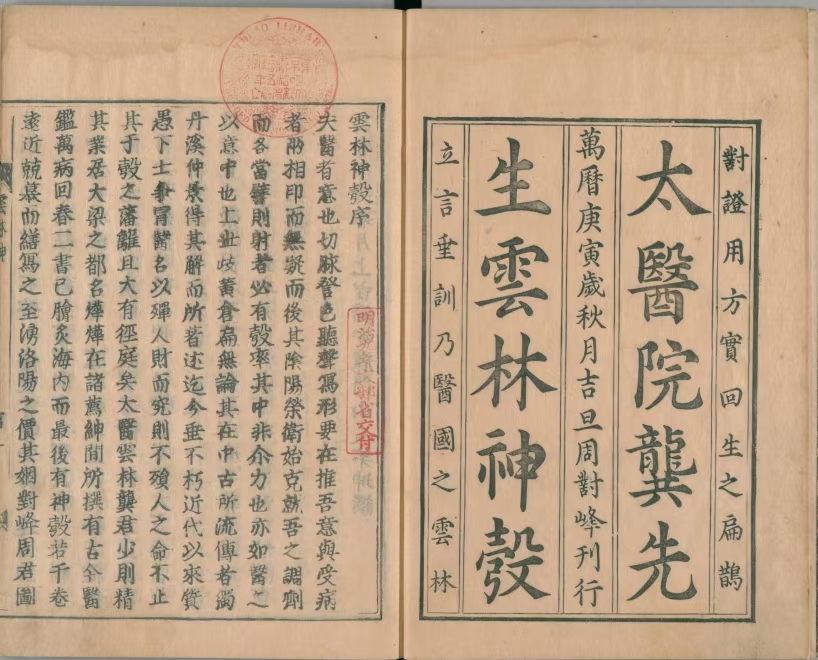 對證用方實回生之扁鵲
太醫院龔先
萬曆庚寅歲秋月吉旦周對峰刊行
生雲林神彀
立言垂訓乃醫國之雲林
雲林神彀序
夫醫者意也切脉詧色聽聲寫形要在推吾意與受病
者兩相印而無疑而後其陰陽榮衛始克就吾之調劑
而各當譬則射者必有彀率其中非介力也亦如醫之
以意中也上世岐黃倉扁無論其在中古所流傳者獨
丹溪仲景得其解而所著述迄今垂不朽近代以來質
愚下士爭冒醫名以殫人財而究則不殞人之命不止
其于彀之藩籬且大有徑庭矣太醫雲林龔君少則精
其業居大梁之都名燁燁在諸薦紳間所撰有古今醫
鑑萬病回春二書已膾炙海內而最後有神彀若干卷
遠近競慕而繕寫之至湧洛陽之價其姻對峰周君圖